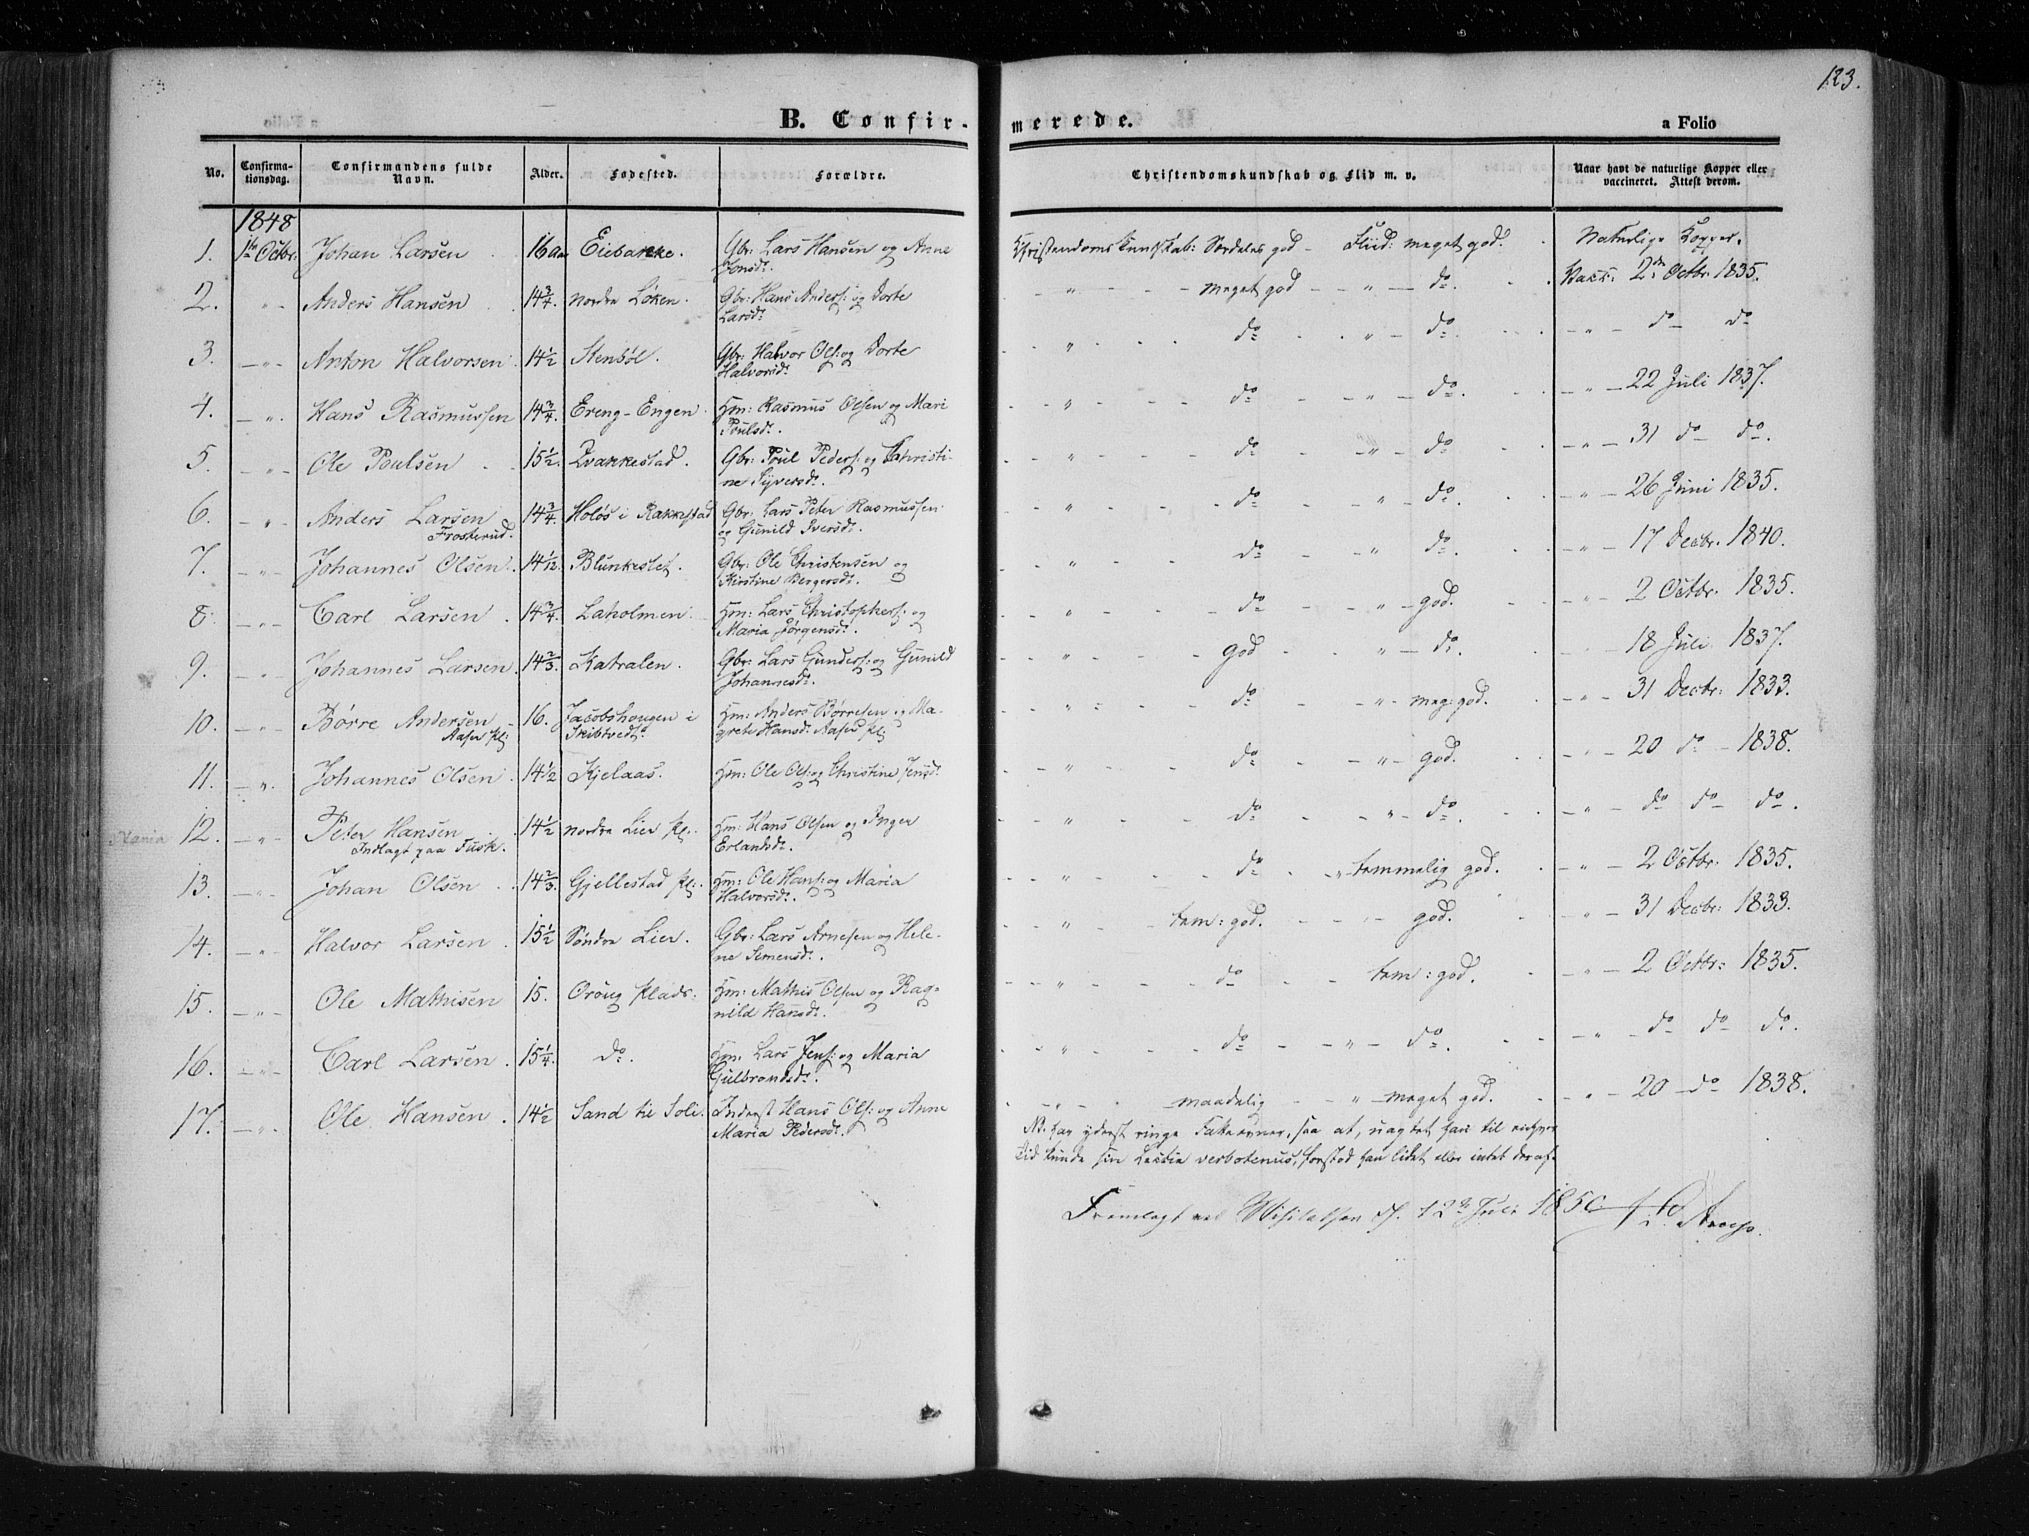 123.
B. Confirmerede.
a Folio
No. Confirmationsdag. Confirmandens fulde Navn. Alder. Fødested. Forældre. Christendomskundskab og Flid m. v. Naar havt de naturlige Kopper eller vaccineret. Attest derom.
1848
1. 1te Octbr: Johan Larsen 16 Aar Eiebakke. Gbr: Lars Hansen og Anne Jonsd: Christendoms Kundskab: Særdeles god - Fliid: meget god. Naturlige Kopper.
2. -"- Anders Hansen 14 3/4. nordre Løken. Gbr: Hans Anders: og Dorte Larsd: -"- meget god -"- do. Vacc: 2den Octbr: 1835.
3. -"- Anton Halvorsen 14 1/2 Stenbøl. Gbr: Halvor Ols: og Dorte Halvorsd: -"- do -"- do. -"- do do
4. -"- Hans Rasmussen 14 3/4. Ereng-Engen. Hm: Rasmus Olsen og Mari Poulsd: -"- do -"- do. -"- 22 Juli 1837.
5. -"- Ole Poulsen 15 1/2. Kvakkestad. Gbr: Poul Peders: og Christine Syversd: -"- do -"- do -"- 31 do do.
6. -"- Anders Larsen Froskerud. 14 3/4. Holøs i Rakkestad Gbr: Lars Peter Rasmussen og Gunild Iversd: -"- do -"- do. -"- 26 Juni 1835.
7. -"- Johannes Olsen. 14 1/12. Blunkeslet. Gbr: Ole Christensen og Kirstine Bergersd: -"- do -"- do. -"- 17 Decbr. 1840.
8. -"- Carl Larsen. 14 3/4. Laholmen. Hm: Lars Christophers: og Maria Jørgensd: -"- do -"- god. -"- 2 Octbr: 1835.
9. -"- Johannes Larsen. 14 2/3. Katralen. Gbr: Lars Gunders: og Gunild Johannesd: -"- god -"- do. -"- 18 Juli 1837.
10. -"- Børre Andersen Aaser Pl: 16. Jacobshougen i Skibtvedt Hm: Anders Børresen og Magrete Hansd: Aaser Pl: -"- do -"- meg: god. -"- 31 Decbr: 1833.
11. -"- Johannes Olsen. 14 1/2 Kjelaas. Hm: Ole Ols: og Christine Jensd: -"- do -"- god. -"- 20 do - 1838.
Maria 12. -"- Peter Hansen Indlagt paa Fusk. 14 1/2 nordre Lier Pl: Hm: Hans Olsen og Inger Erlandsd: -"- do -"- do. -"- do do do.
13. -"- Johan Olsen 14 2/3. Gjellestad Pl: Hm: Ole Hans: og Maria Halvorsd: -"- do -"- temmelig god. -"- 2 Octbr: 1835.
14. -"- Halvor Larsen. 15 1/2 Søndre Lier. Gbr: Lars Arnesen og Helene Simensd: -"- tem: god. god. -"- 31 Decbr: 1833.
15. -"- Ole Mathisen 15. Orøug Plads. Hm: Mathis Olsen og Ragnild Hansd: -"- do tem: god. -"- 2 Octbr: 1835.
16. -"- Carl Larsen. 15 1/4. do. Hm: Lars Jens: og Maria Gulbrandsd: -"- do -"- do. -"- do do do.
17. -"- Ole Hansen. 14 1/2 Sand til Soli. Inderst Hans Ols: og Anne Maria Pedersd: -"- maadelig -"- meget god. -"- 20 do 1838.
NB. har yderst ringe Fatteevner, saa at, uagtet han til enhver
Tid kunde sin Lectie verbotenus, forstod han lidet eller intet deraf.
Fremlagt ved Visitatsen d. 12te Juli 1850